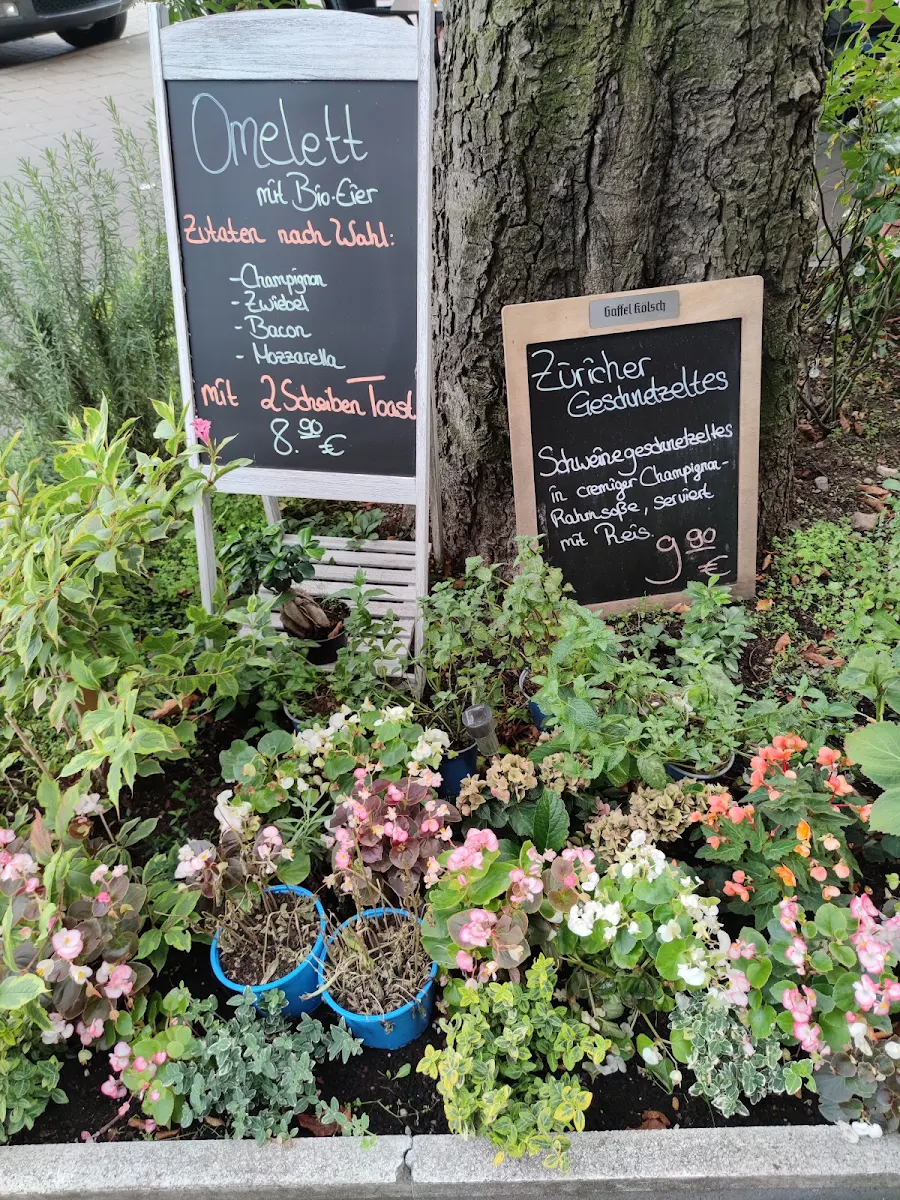 Omelett
mit Bio-Eier
Zutaten nach Wahl:
- Champignon
- Zwiebel
- Bacon
- Mozzarella
mit 2 Scheiben Toast
8.90 €
Gaffel Kölsch
Züricher
Geschnetzeltes
Schweinegeschnetzeltes
in cremiger Champignon-
Rahmsoße, serviert
mit Reis.
9 90 €